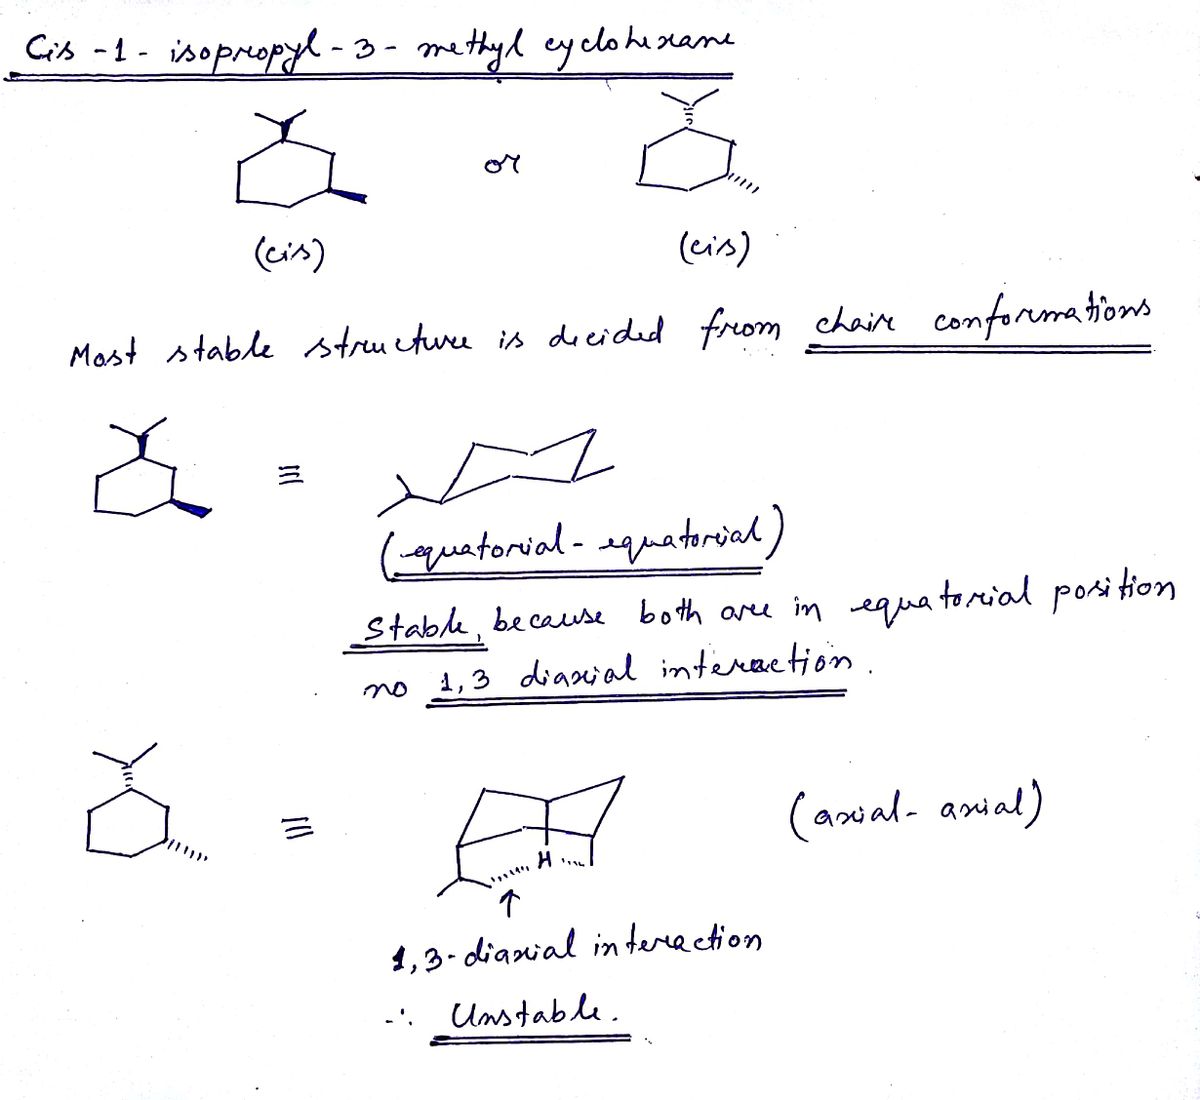 Cis -1- isopropyl - 3 - methyl cyclohexane
or
(cis)
(cis)
Most stable structure is decided from chair conformations
≡
(equatorial - equatorial)
Stable, because both are in equatorial position
no 1,3 diaxial interaction.
≡
(axial - axial)
H
↑
1,3-diaxial interaction
∴ Unstable.